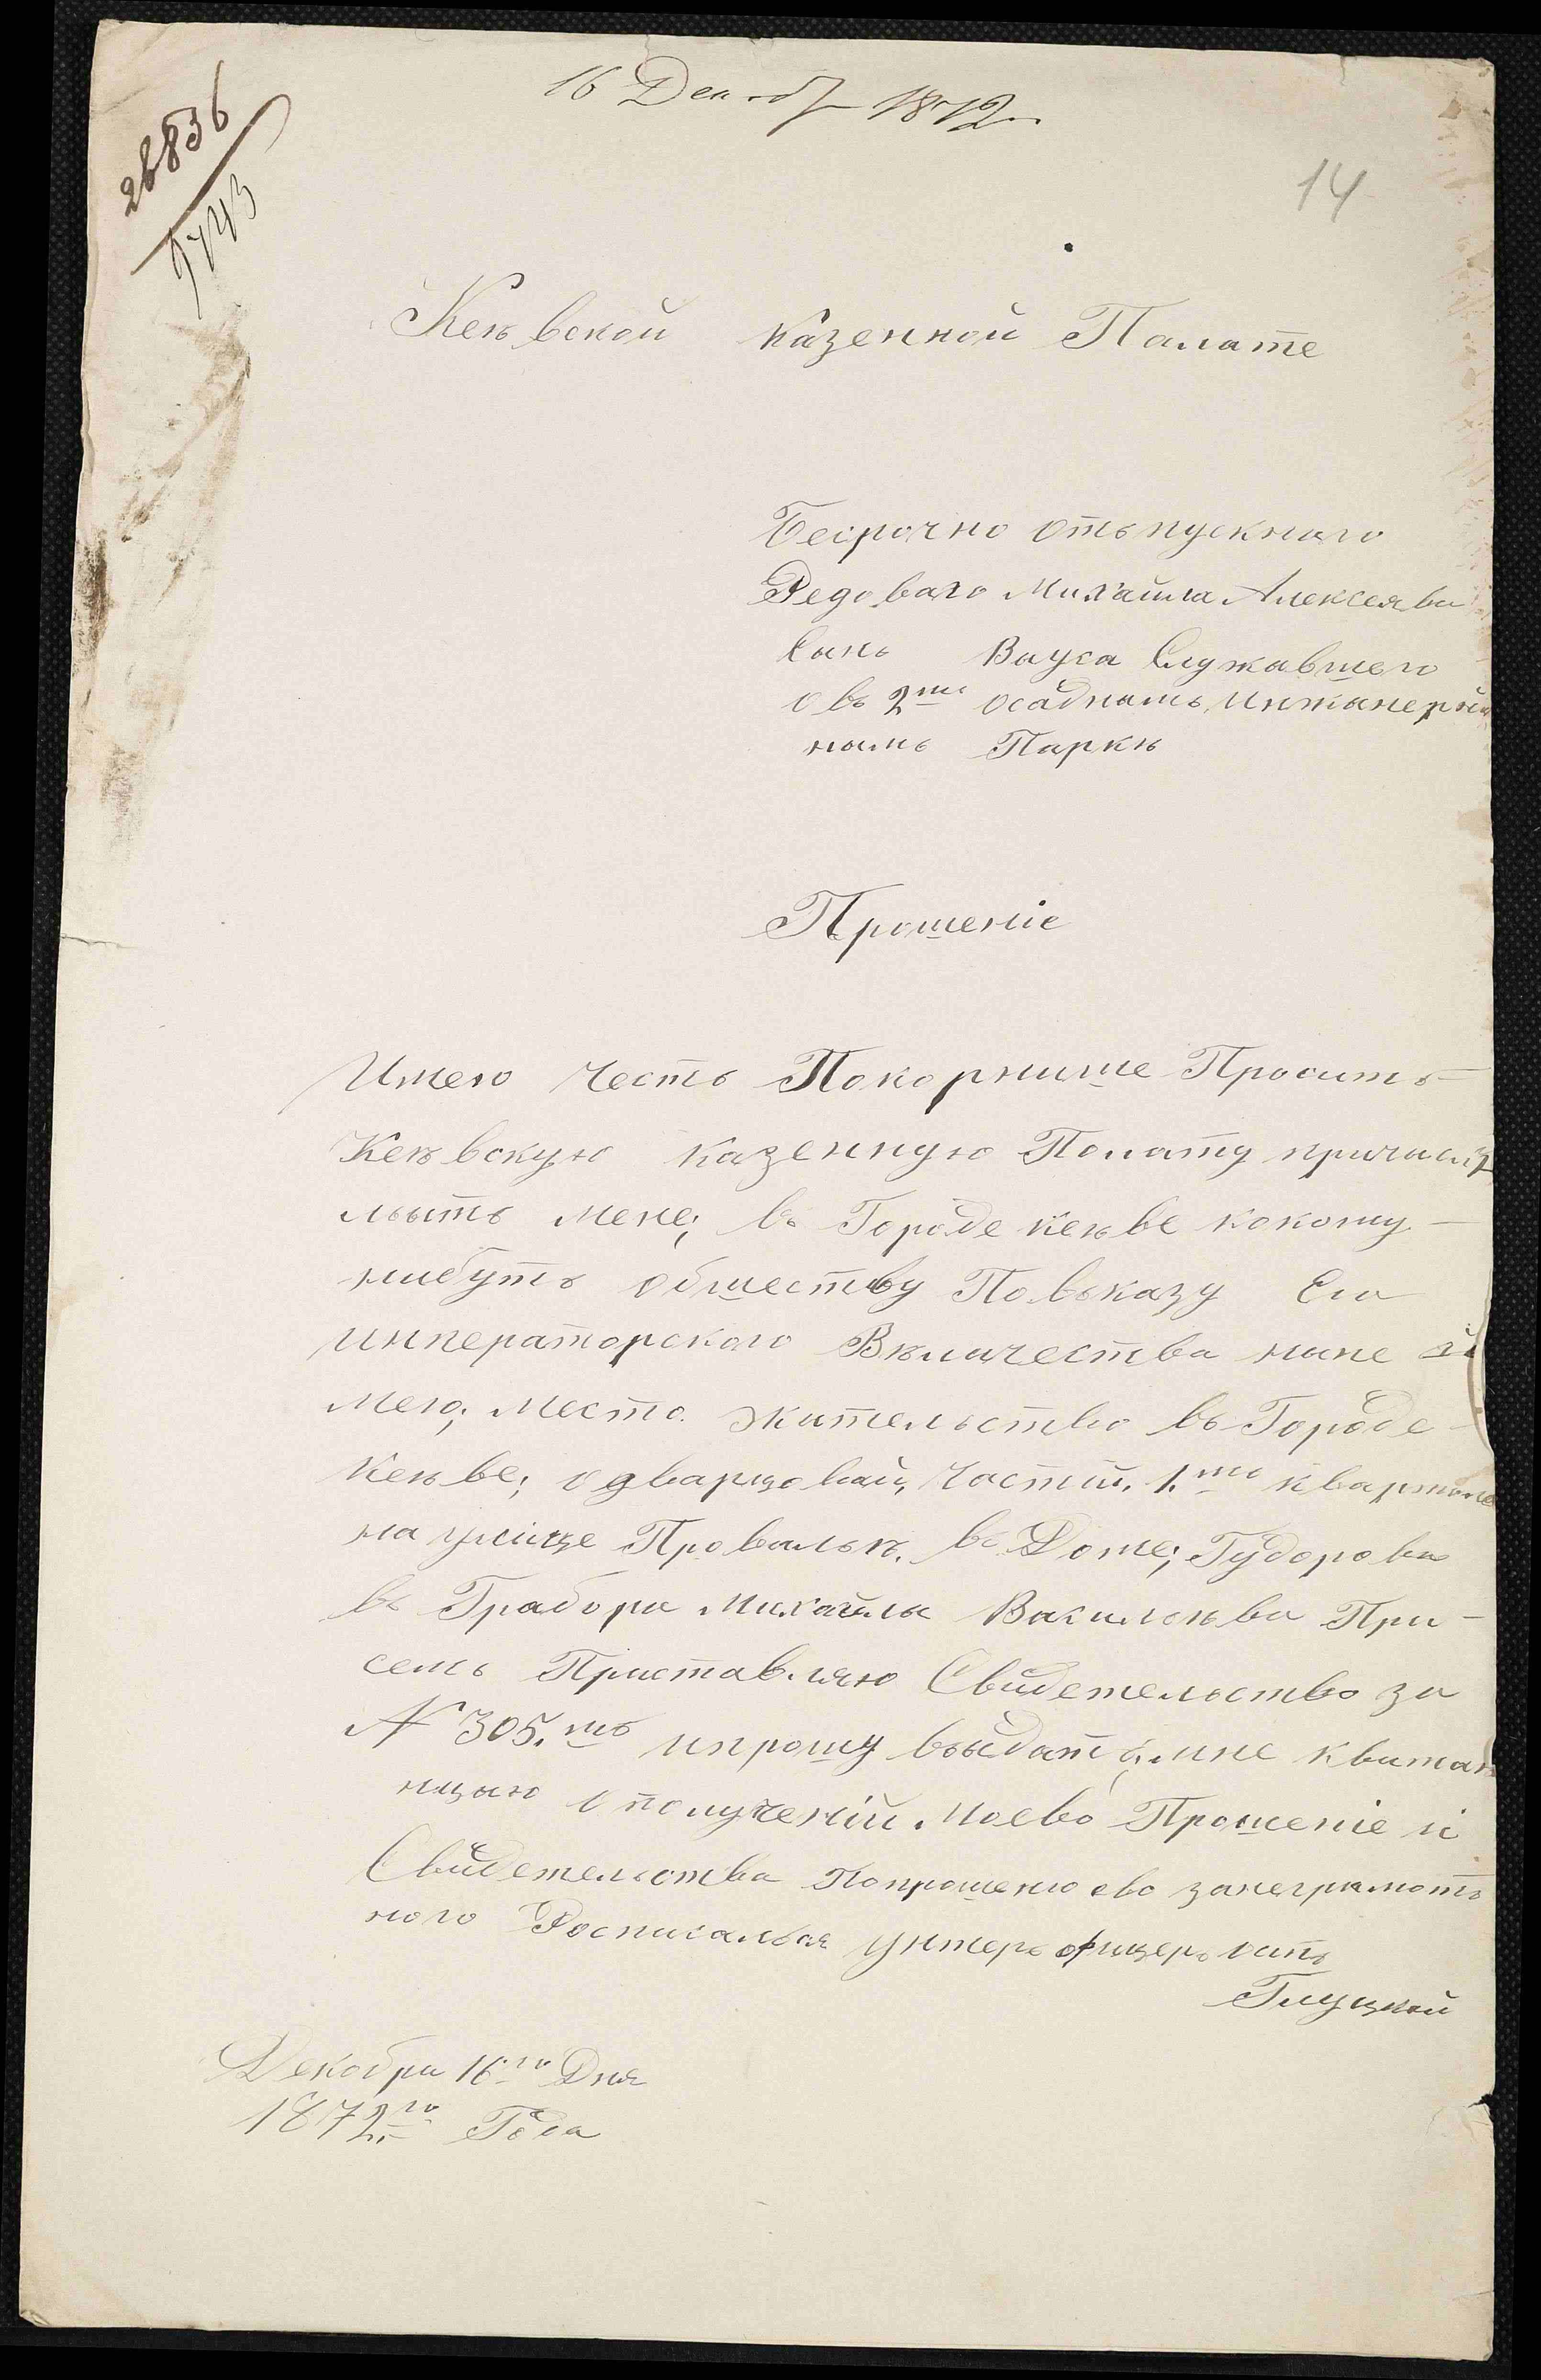 16 Декаб 1872
28836
14
Кеѣвской казенной Палате
Бесрочно отъпускнаго
Редоваго Михайла Алексеява
Сынъ Вауса Служавшего
овъ 2мъ осаднамъ Инжанерно
намъ Паркѣ
Прошеніе
Имею честь Покорнише Просить
Кеѣвскую казенную Полату причисля
лыить мене; въ Городе кеѣве кокому
нибуть обшеству Повъказу Его
императорского Вѣличества ныне й
мею; место жительство въ Городе
кеѣве; одварцовай, частій. 1.мъ квартале
на улице Провальѣ. въ Доме; Гудорова
въ Грабора Михайлы Васильѣва При
семъ Приставляю Свидетельство за
№ 305.мъ ипрошу выдатъ; мне квитан
нцыю ополученій. Моево Прошеніе и
Свидетельства Попрошению ево занеграмотъ
ного Росписалься унтеръ офицеръ
Глуцкой
Декобра 16го Дня
1872.го Года